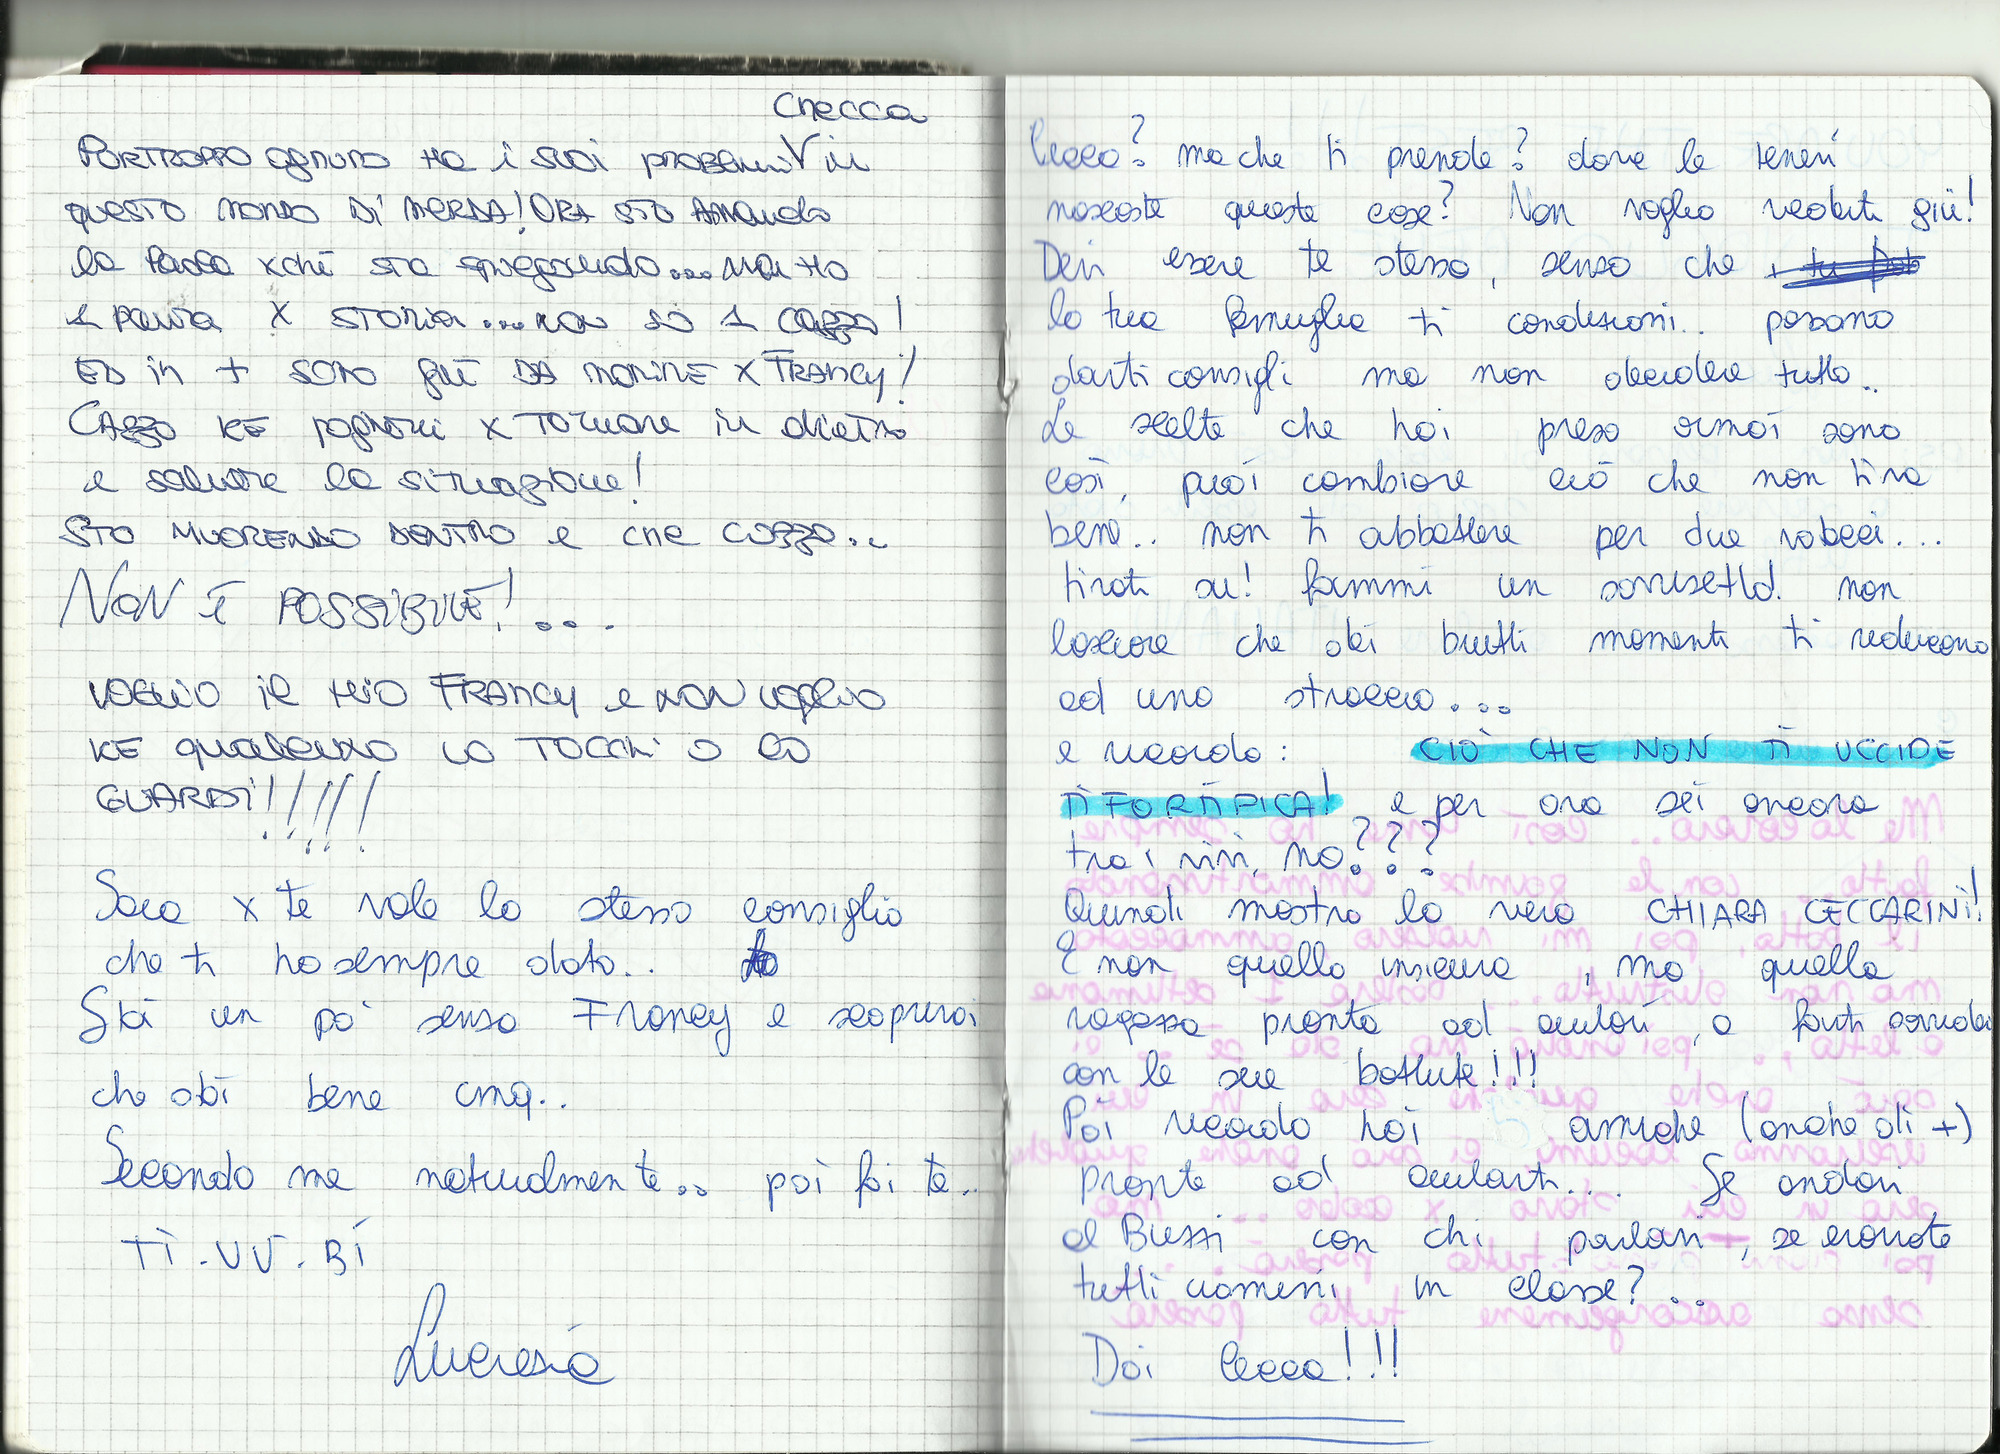 Checca
PORTROPPO OGNUNO HA i SUOI PROBEMI in
QUESTO MONDO Di MERDA! ORA STO AMANDO
la Paola xchè sta spiegando... NON HO
1 PAURA X STORIA... non so 1 cazzo!
ED in + SONO GIÙ DA MORIRE X FRANCY!
CAZZO KE pagherei x TORNARE in dietro
e salvare la situazione!
STO MUORENDO DENTRO e che cazzo..
NON È POSSIBILE!...
VOGLIO il MIO FRANCY e NON voglio
KE qualcuno LO TOCCHi o LO
GUARDi!!!!!!
Sara x te vale lo stesso consiglio
che ti ho sempre dato..
Stai un po' senza Francy e scoprirai
che stai bene cmq..
Secondo me naturalmente.. poi fai te..
Ti.VV.Bi
Lucrezia
Cecca? ma che ti prende? dove le tenevi
nascoste queste cose? Non voglio vederti giù!
Devi essere te stessa, senza che
la tua famiglia ti condizioni.. possono
darti consigli ma non decidere tutto..
Le scelte che hai preso ormai sono
così, puoi cambiare ciò che non ti va
bene.. non ti abbattere per due voteci...
tirati su! fammi un sorrisetto! non
lasciare che dei brutti momenti ti riducono
ad uno straccio...
e ricorda: CIÒ CHE NON TI UCCIDE
TI FORTIFICA! e per ora sei ancora
tra i vivi, no???
Quindi mostra la vera CHIARA CECCARINI!
E non quella insicura, ma quella
ragazza pronta ad aiutarti, a farti sorridere
con le sue battute!!!
Poi ricorda hai amiche (anche di +)
pronte ad aiutarti.... Se andavi
al Buzzi con chi parlavi, se eravate
tutti uomini in classe?..
Dai Cecca!!!